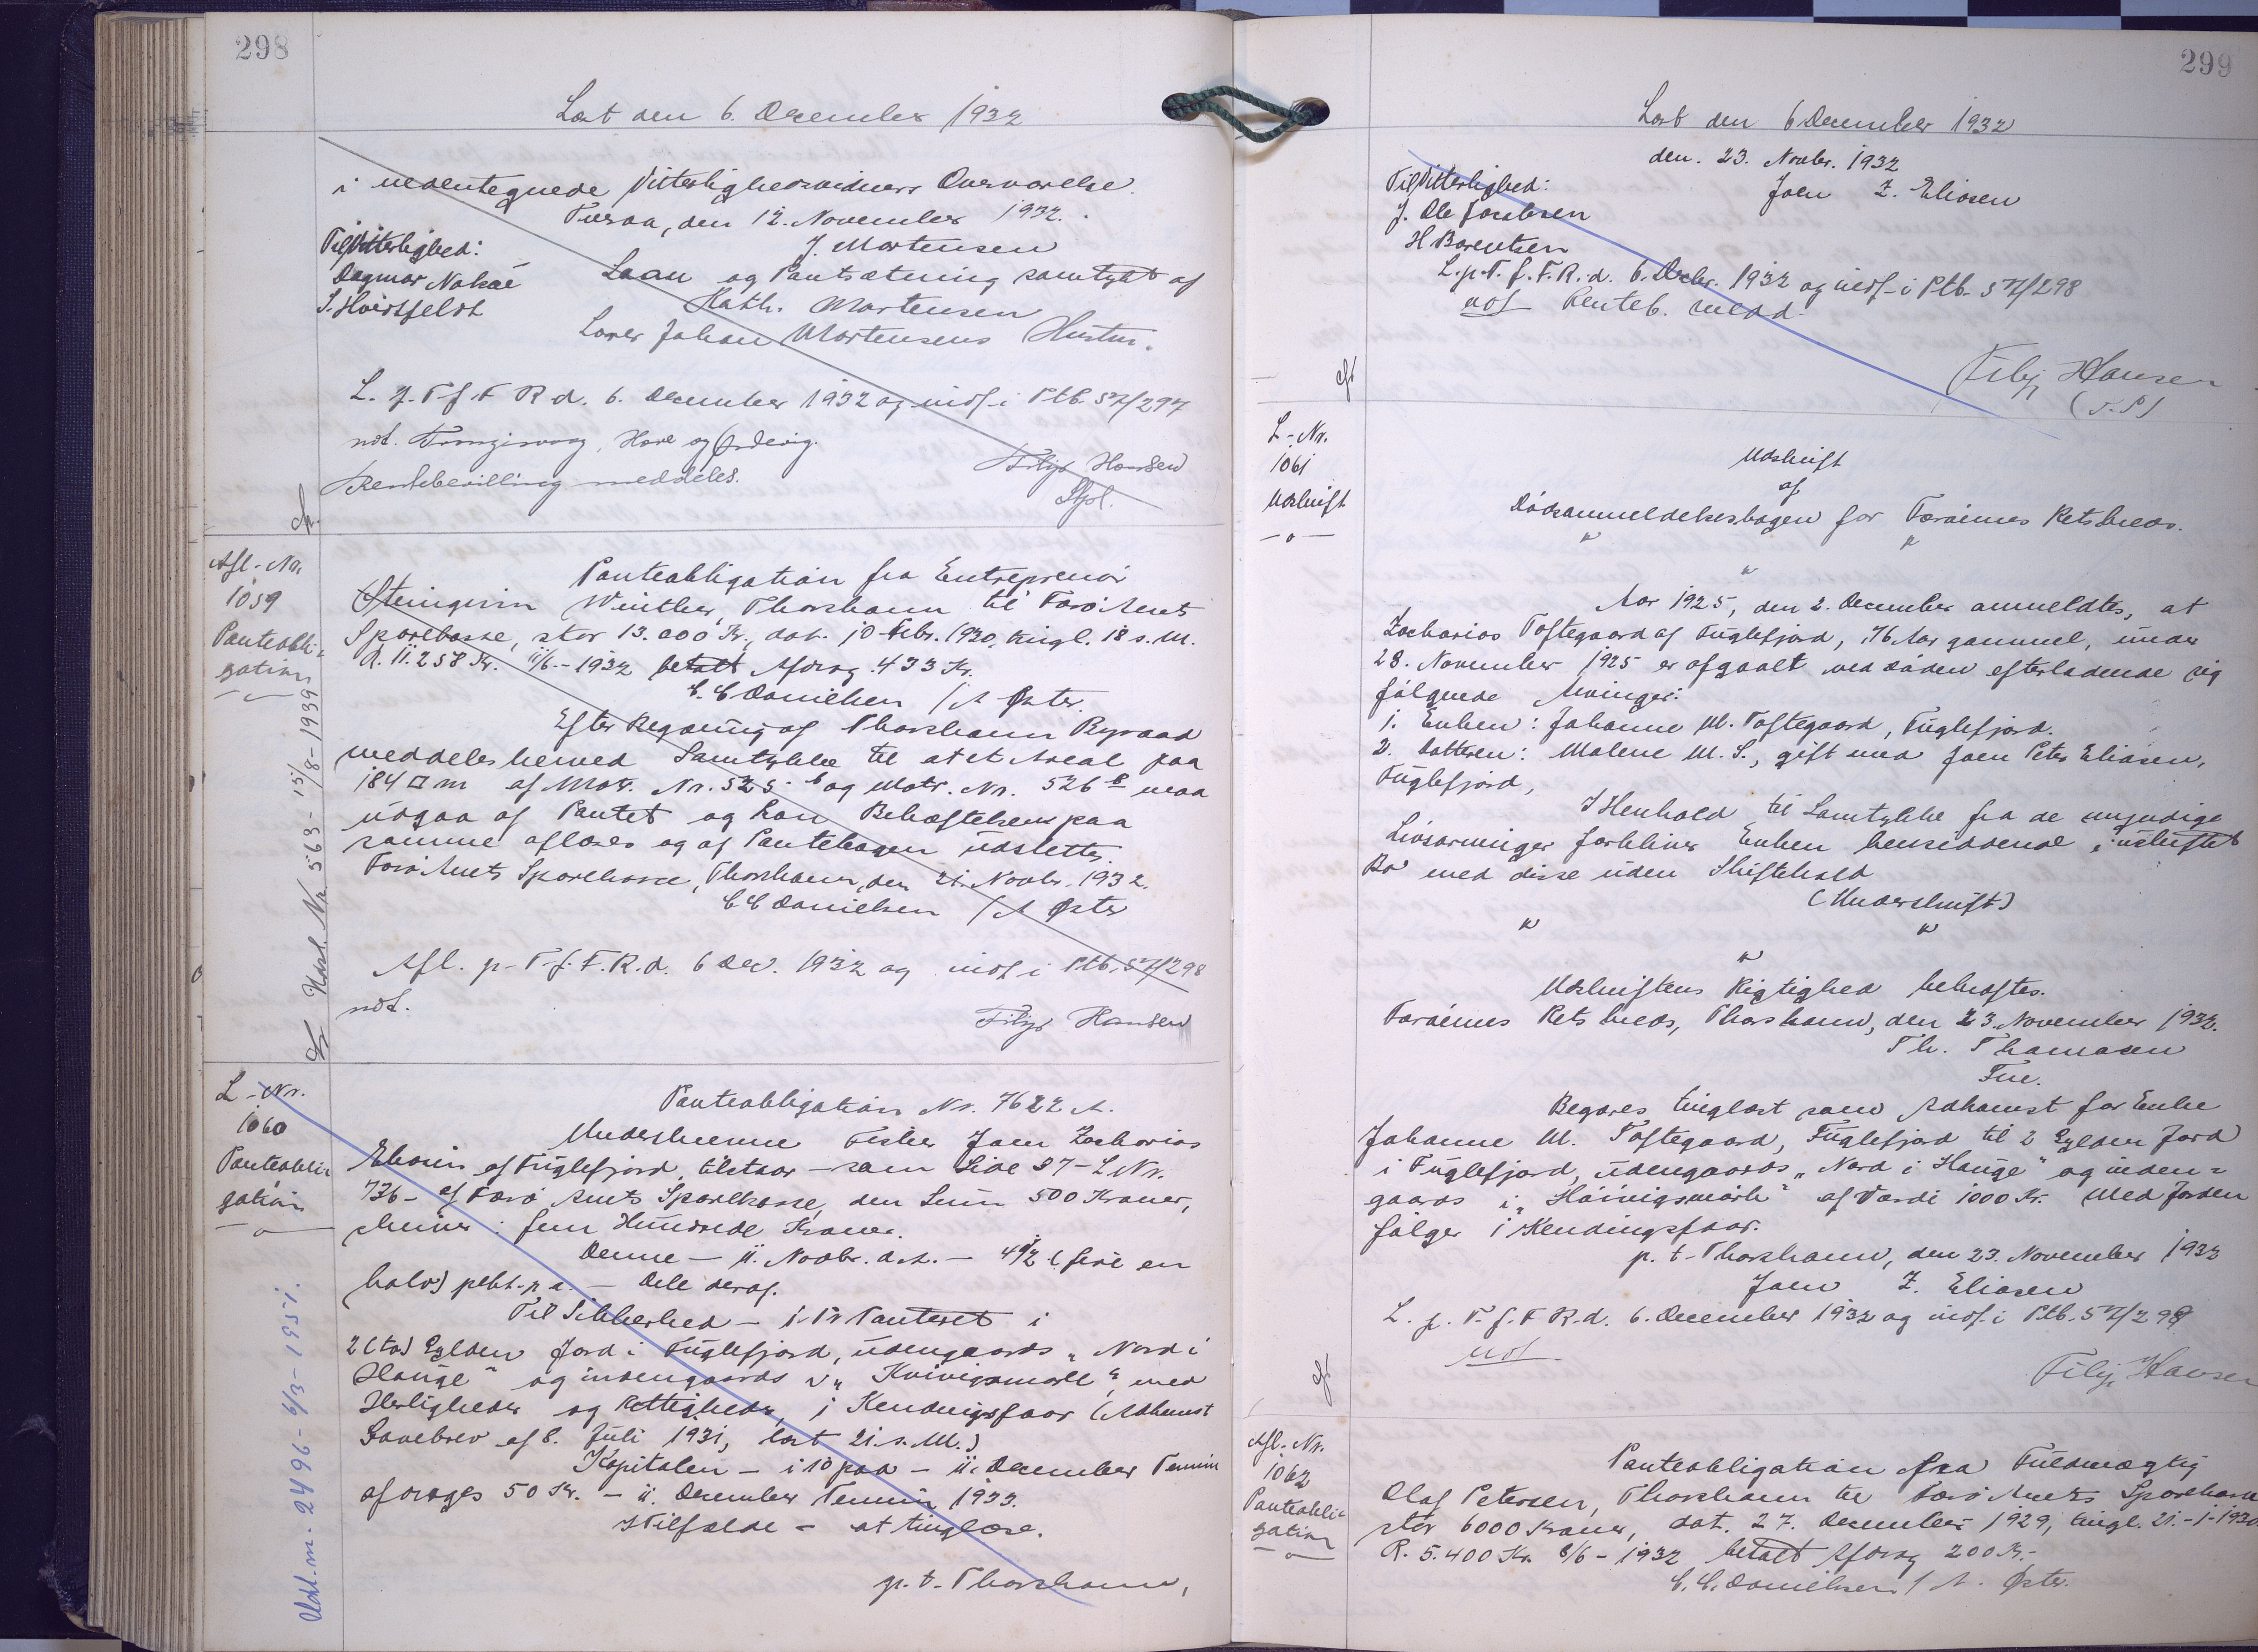 298
Læst den 6. December 1932
i nedentegnede Vitterlighedsvidners Overværelse.
Tveraa, den 12. November 1932.
Til Vitterlighed:
J. Mortensen
Dagmar
Laan og Pantsætning samtykt af
S. Hvidtfeldt
Kath. Mortensen
Lærer Johan Mortensens Hustru.
L. p. T f F R d. 6. December 1932 og indf. i Ptb. 57/297
not. Trangisvaag, Hove og Ördevig.
Rentebevilling meddeles.
Filip Hansen
Afl.-Nr.
1059
Panteobli-
gation
Udsl. Nr. 563 - 15/8 - 1939
Panteobligation fra Entreprenör
Steingrim Winther, Thorshavn til Færö Amts
Sparekasse, stor 13.000 Kr., dat. 10 Febr. 1930, tingl. 18 s. M.
R. 11.258 Kr. 11/6 - 1932 betalt Afdrag 433 Kr.
C. C. Danielsen / A Öster.
Efter Begæring af Thorshavn Byraad
meddeles herved Samtykke til at et Areal paa
184 □ m af Matr. Nr. 525 b og Matr. Nr. 526 B maa
udgaa af Pantet og kan Behæftelsen paa
samme aflæses og af Pantebogen udslettes.
Færö Amts Sparekasse, Thorshavn, den 21. Novbr. 1932.
C C Danielsen / A Öster
Afl. p. T. f. F. R. d. 6 Dec. 1932 og indf i Ptb. 57/298
not.
Filip Hansen
L-Nr.
1060
Panteobli-
gation
Udsl. m. 2496 - 6/3 - 1951.
Panteobligation Nr. 7622 A.
Underskrevne Fisker Joen Zacharias
Eliasen af Fuglefjord tilstaar - som Side 27 - L Nr.
736 - af Færö Amts Sparekasse, den Sum 500 Kroner,
skriver: fem Hundrede Kroner.
Denne - 11. Novbr. d. A. - 4 1/2 (fire en
halv) pCt. p. a. - Dele deraf.
Til Sikkerhed - 1. Pr Panteret i
2 (to) Gylden Jord i Fuglefjord, udengaards „Nord i
Hauge“ og indengaards i „Kvivigsmörk“, med
Herligheder og Rettigheder, i Kendingsfaar (Adkomst
Gavebrev af 8. Juli 1931, læst 21. s. M.)
Kapitalen - i 10 paa - 11. December Termin
afdrages 50 Kr. - 11. December Termin 1933.
I Tilfælde - at tinglæse.
p. t. Thorshavn,
299
Læst den 6 December 1932
den. 23. Novbr. 1932
Til Vitterlighed:
Joen Z. Eliasen
J. Ole Jacobsen
H Barentsen
L. p. T. f. F. R. d. 6. Decbr. 1932 og indf. i Ptb. 57/298
not Renteb. medd.
Filip Hansen
L-Nr.
1061
Udskrift
Udskrift
af
Dödsanmeldelsesbogen for Færöernes Retskreds.
Aar 1925, den 2. December anmeldtes, at
Zacharias Toftegaard af Fuglefjord, 76 Aar gammel, under
28. November 1925 er afgaaet ved Döden efterladende sig
fölgende Arvinger:
1. Enken: Johanne M. Toftegaard, Fuglefjord.
2. Datteren: Malene M. S., gift med Joen Peter Eliasen,
Fuglefjord,
I Henhold til Samtykke fra de myndige
Livsarvinger forbliver Enken hensiddende i uskiftet
Bo med disse uden Skiftehold
(Underskrift)
Udskriftens Rigtighed bekræftes.
Færöernes Retskreds, Thorshavn, den 23. November 1932.
Th. Thomasen
Fuc.
Begæres tinglæst som Adkomst for Enke
Johanne M. Toftegaard, Fuglefjord til 2 Gylden Jord
i Fuglefjord, udengaards „Nord i Hauge“ og inden-
gaards i „Kvivigsmörk“ af Værdi 1000 Kr. Med Jorden
fölger i Kendingsfaar.
p. t. Thorshavn, den 23. November 1932
Joen Z. Eliasen
L. p. T. f. F R. d. 6. December 1932 og indf. i Ptb. 57/299
not
Filip Hansen
Afl.-Nr.
1062
Panteobli-
gation
Panteobligation fra Fuldmægtig
Olaf Petersen, Thorshavn til Færö Amts Sparekasse
stor 6000 Kroner, dat. 27. December 1929, tingl. 21.-1-1930
R. 5.400 Kr. 8/6 - 1932 betalt Afdrag 200 Kr.-
C. C. Danielsen / A. Öster.